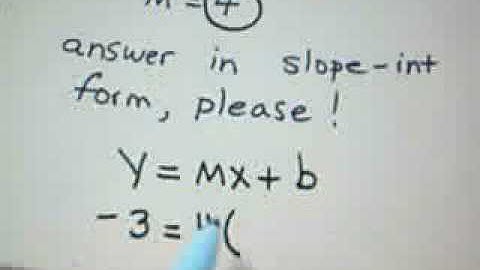 M = 4
answer in slope-int
form, please !
Y = MX + b
-3 = (